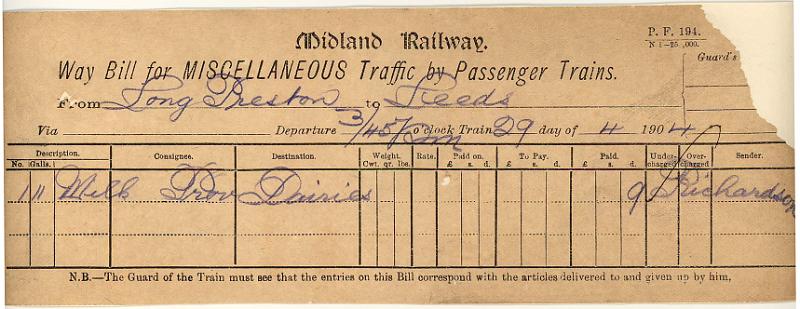 Midland Railway.
P. F. 194.
Way Bill for MISCELLANEOUS Traffic by Passenger Trains.
Guard's
From Long Preston to Leeds
Via Departure 3/45 pm o'clock Train 29 day of 4 1904
Description. Consignee. Destination. Weight. Rate. Paid on. To Pay. Paid. Under-charged Over-charged Sender.
No. Galls. Cwt. qr. lbs. £ s. d. £ s. d. £ s. d.
1 11 Milk Prov Dairies 9 Richardson
N.B.—The Guard of the Train must see that the entries on this Bill correspond with the articles delivered to and given up by him,